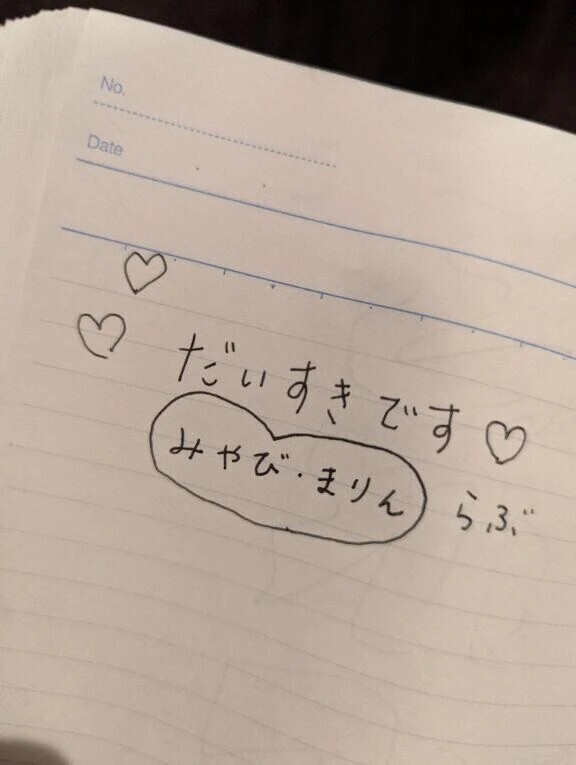 No.
Date
♡
♡ だいすきです♡
みやび・まりん らぶ